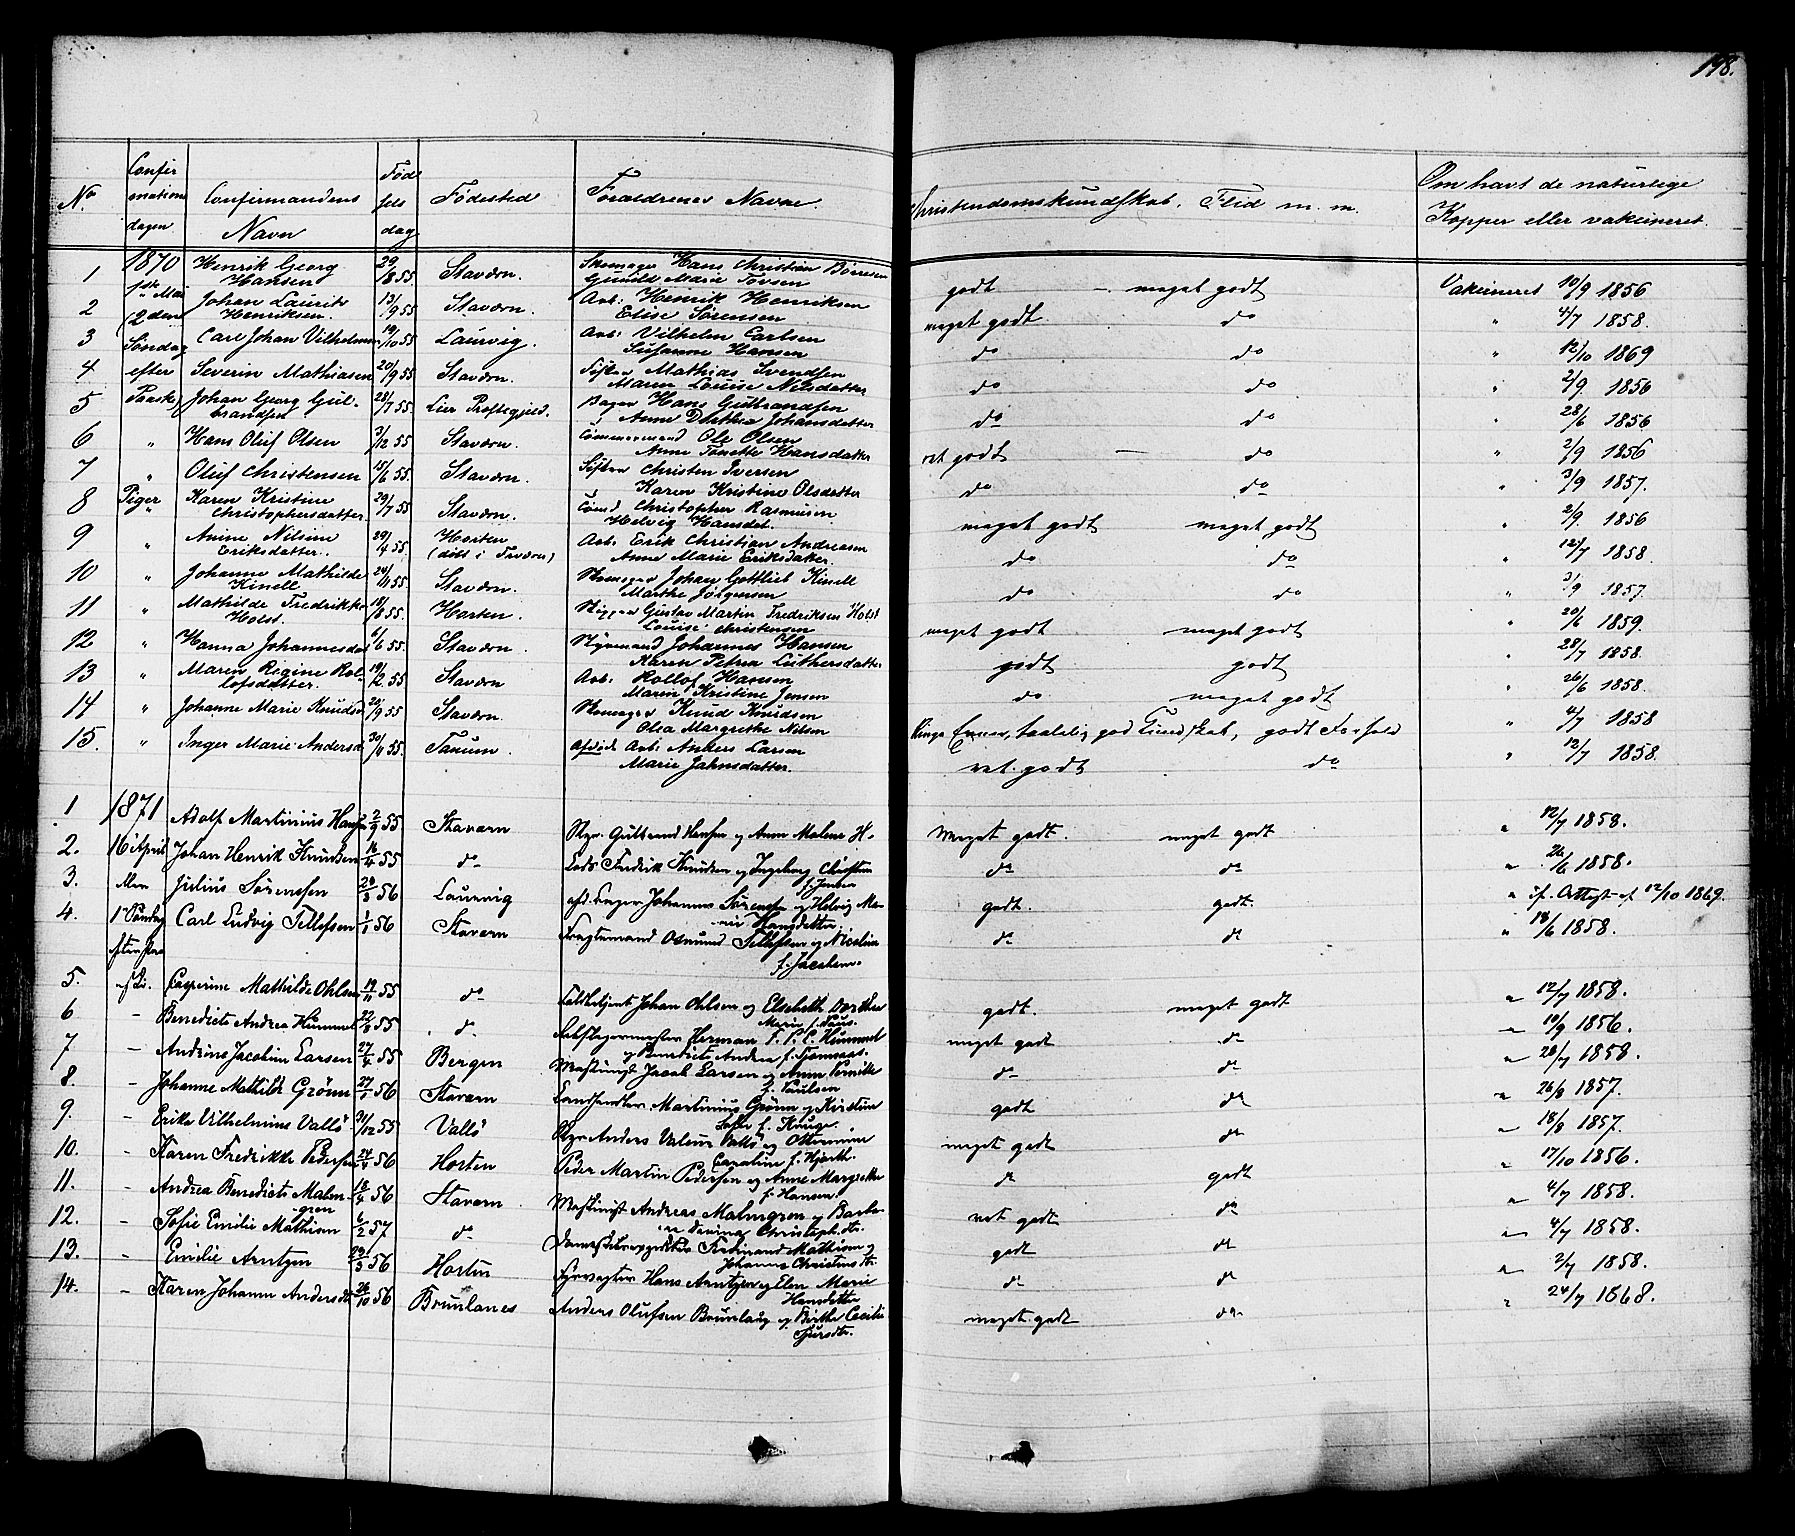 198.
No
Confirmationsdagen
Confirmandens Navn
Fødselsdag
Fødested
Forældrenes Navne.
Christendomskundskab, Flid m. m.
Om havt de naturlige Kopper eller vakcineret.
1870
1ste Mai
(2den
Søndag
efter
Paaske)
1 Henrik Georg Hansen 29/8 55 Staværn. Skomager Hans Christian Børresen Gunild Marie godt — meget godt Vakcineret 10/9 1856
2 Johan Laurits Henriksen. 13/9 55 Staværn. Arb: Henrik Henriksen Elise Sørensen meget godt do " 4/7 1858.
3 Carl Johan Vilhelmsen 19/10 55 Laurvig. Arb: Vilhelm Carlsen Susanne Hansen do do " 12/10 1869
4 Severin Mathiasen 20/9 55 Staværn. Mathias Svendsen Maren Louise Nilsdatter do do " 2/9 1856
5 Johan Georg Gulbrandsen 28/7 55. Lier Præstegjeld. Bager Hans Gulbrandsen Anne Dorthea Johansdatter do do " 28/6 1856
6 " Hans Oluf Olsen 3/12 55 Staværn. Tømmermand Ole Olsen Anne Tonette Hansdatter ret godt — do " 2/9 1856
7 " Oluf Christensen /6 55. Staværn. Christen Iversen Karen Kristine Olsdatter do do " 3/9 1857.
8 Piger " Karen Kristine Christophersdatter. 29/7 55 Staværn. Tømd Christopher Rasmusen Helvig Hansdat. meget godt meget godt " 2/9 1856
9 " Anine Nilsine Eriksdatter. 29/4 55. Horten Arb. Erik Christian Andreasen Anne Marie Eriksdatter. do do " 12/7 1858
10 " Johanne Mathilde Kinell 24/11 55. Staværn. Skomager Johan Gottlieb Kinell Marthe Jørgensen do do " 3/9 1857.
11 " Mathilde Fredrikke Holst. 18/8 55. Horten. Skipper Gustav Martin Fredriksen Holst Louise Christensen meget godt meget godt " 20/6 1859.
12 " Hanna Johannesdat 6/6 55. Staværn. Styrmand Johannes Hansen Karen Petrea Luthersdatter godt godt " 28/7 1858.
13 " Maren Regine Rollofsdatter. 19/2 55 Staværn Arb: Rollof Hansen Maren Kristine Jensen do meget godt " 26/6 1858.
14 " Johanne Marie Knudsd 20/9 55 Staværn. Skomager Knud Knudsen Olea Margrethe Nilsen Ringe Evner, taalelig god Kundskab, godt Forhold " 4/7 1858
15. " Inger Marie Andersd. 30/11 55. Tanum. afdøde Arb: Anders Larsen Marie Jahnsdatter. ret godt do " 12/7 1858.
1871
16 April
1 Søndag
1 Adolf Martinius Hansen 2/9 55. Stavern Skpr. Gulbrand Hansen og Anne Malene H. Meget godt. meget godt " 12/7 1858.
2. Johan Henrik Knudsen 16/4 55 do Lods Fredrik Knudsen og Ingeborg Christine f. Jensen do do " 26/6 1858.
3. Julius Sørensen 56 Laurvig afd. Johannes Sørensen og Helvig Marie Hansdatter godt. godt. " if. Attest af 12/10 1869.
4. Carl Ludvig Tellefsen 1/1 56 Stavern Fragtemand Osmund Tellefsen og Nicoline f. Jacobsen do do " 18/6 1858.
5. Casperine Mathilde Ohlsen 19/11 55 do Toldbetjent Johan Ohlsen og Elsebeth Dorthea Marie f. godt. meget godt " 12/7 1858.
6 - Benedicte Andrea Hummel 55 do Herman F. P. C. Hummel og Benedicte Andrea f. meget godt do " 10/9 1856.
7 - Andrine Jacobine Larsen 27/4 55 Bergen Maskinist Jacob Larsen og f. Paulsen do do " 28/7 1858.
8. - Johanne Mathilde Grønn 27/1 56 Stavern Landhandler Martinius Grønn og Kirstine f. Kruge godt do " 26/8 1857.
9. - Erika Vilhelmine Vallø 31/12 55 Vallø Skpr Anders Vallø og Caroline f. Hjorth. meget godt do " 18/9 1857.
10. - Karen Fredrikke Pedersen 56 Horten Peder Martin Pedersen og Anne Margrethe f. Hansen. do godt " 17/10 1856.
11. - Andrea Benedicte Malmgren 18/4 56 Stavern Maskinist Andreas Malmgren og Christophdtr. ret godt do " 4/7 1858.
12. - Sofie Emilie Mathisen 6/2 57 do Ferdinand Mathisen og Johanne Christensdtr. godt do " 4/7 1858.
13. - Emilie Arntzen 56 Horten Fyrvogter Hans Arntzen og Elen Marie Hansdatter do do " 2/7 1858.
14. - Karen Johanne Andersdtr 26/10 56 Brunlanes Anders Olufsen Brunlaug og Birthe Cecilie meget godt do " 24/7 1868.